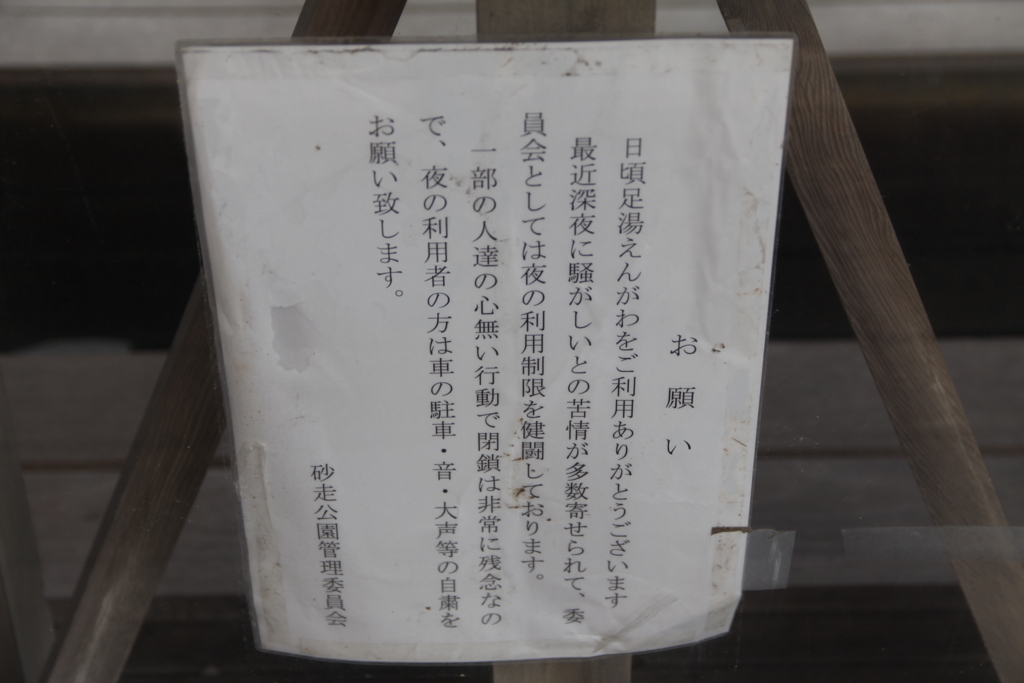 お願い
日頃足湯えんがわをご利用ありがとうございます
最近深夜に騒がしいとの苦情が多数寄せられて、委
員会としては夜の利用制限を健闘しております。
一部の人達の心無い行動で閉鎖は非常に残念なの
で、夜の利用者の方は車の駐車・音・大声等の自粛を
お願い致します。
砂走公園管理委員会